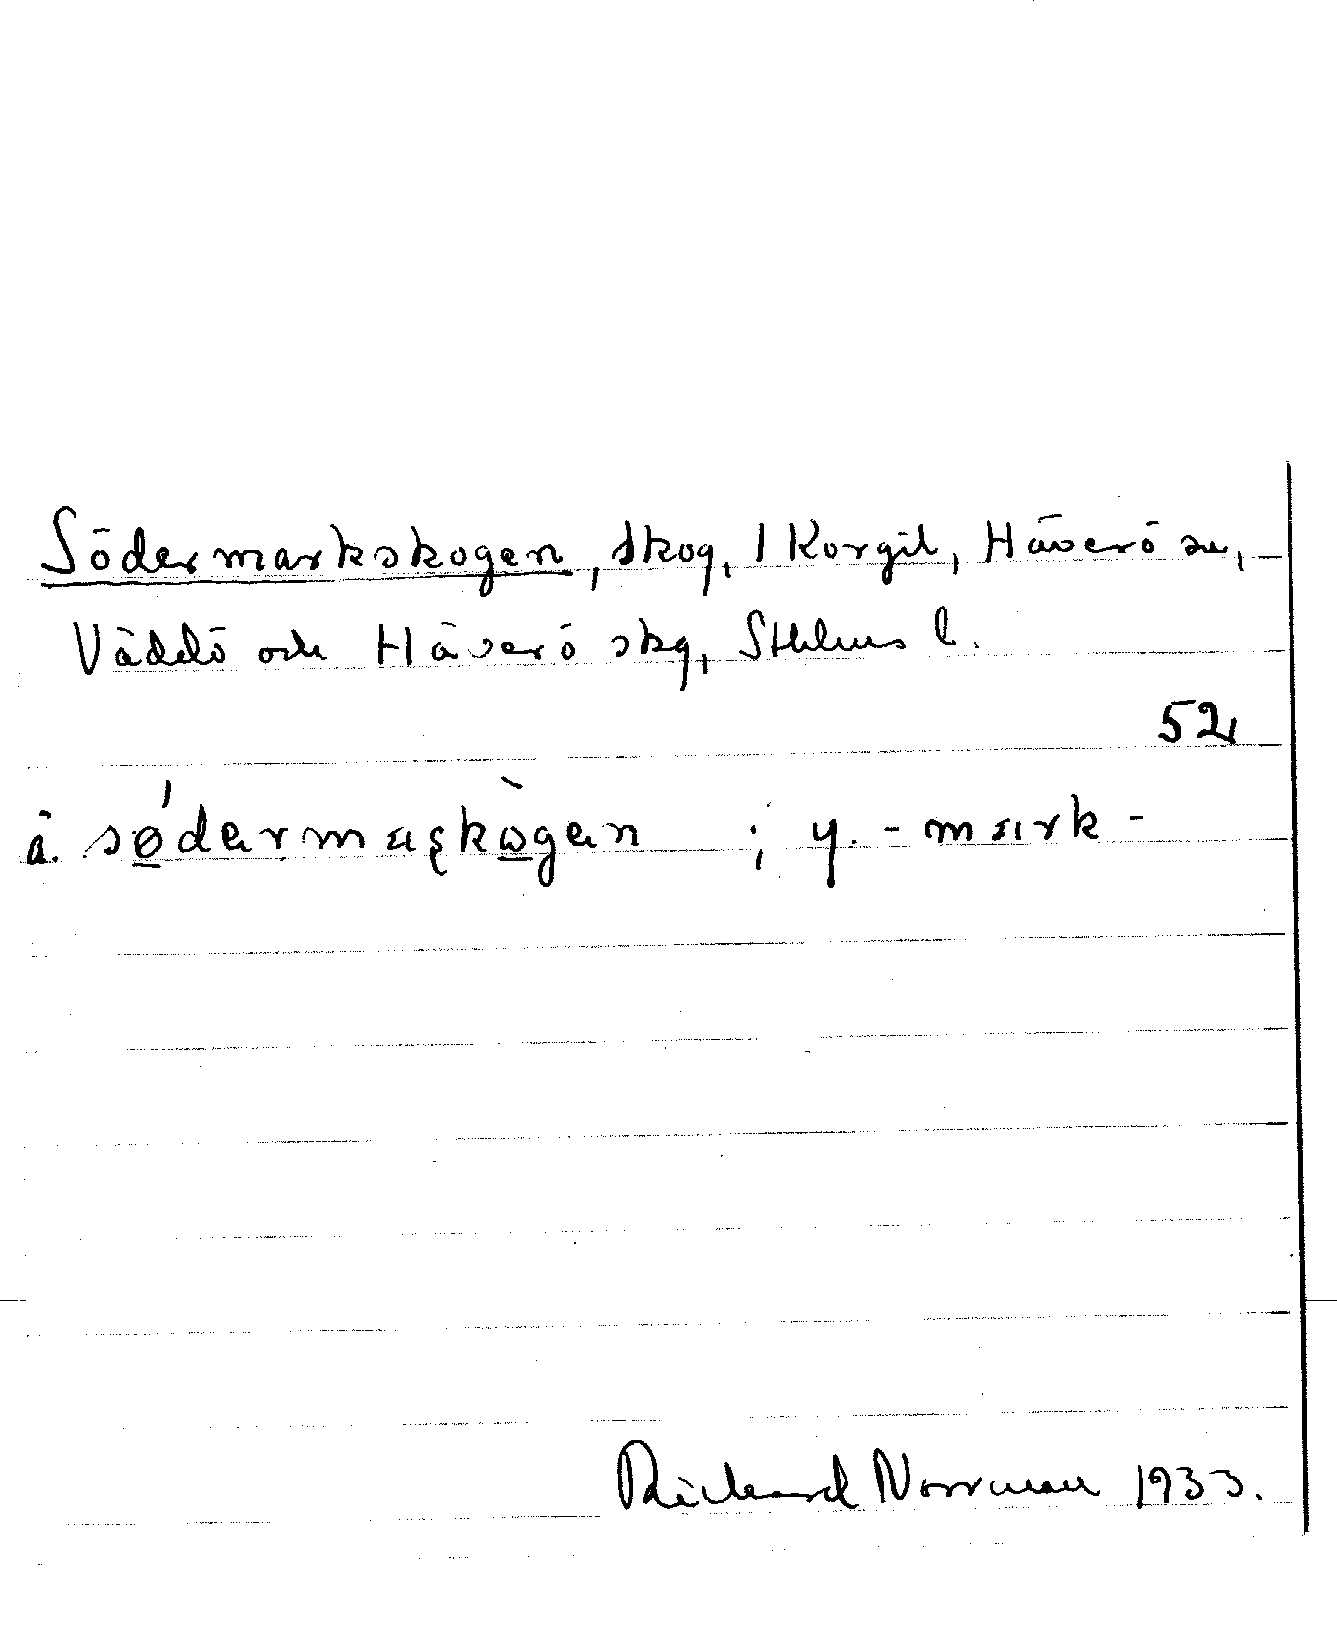 Södermarkskogen, skog, 1 Korgil, Häverö sn,
Väddö och Häverö skg, Sthlms l.
52
å. sǿ̲dərmaʂkò̲gən ; y. -mark-
Rickard Norrman 1933.